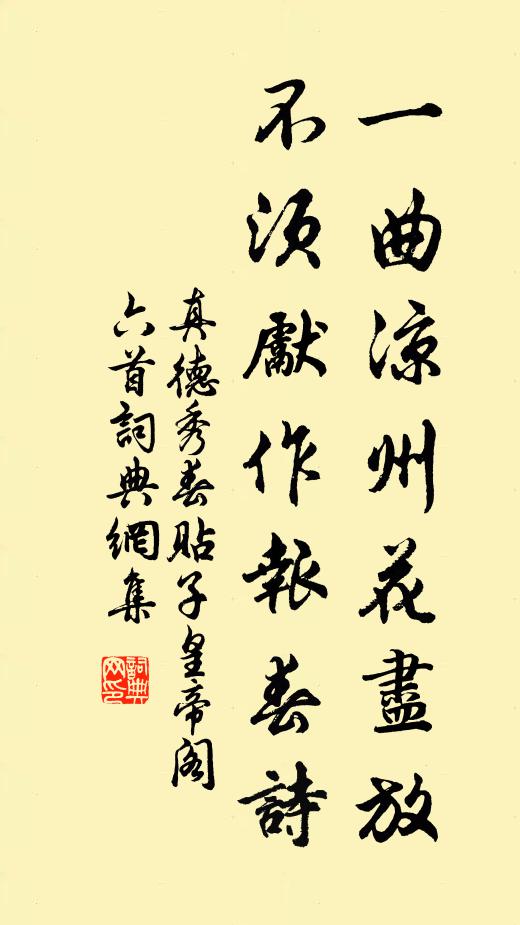 一曲涼州花盡放
不須獻作報春詩
真德秀春貼子皇帝閣
六首詞典網集
詞典
网印